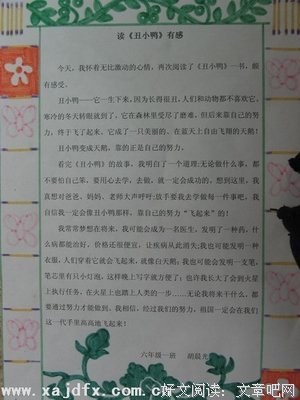 读《丑小鸭》有感
今天，我怀着无比激动的心情，再次阅读了《丑小鸭》一书，颇
有感受。
丑小鸭——它一生下来，因为长得很丑，人们和动物都不喜欢它，
寒冷的冬天转眼就到了，它在森林里受尽了磨难，但后来靠自己的努
力，终于飞了起来，它成了一只美丽的、在蓝天上自由飞翔的天鹅！
丑小鸭变成天鹅，靠的正是自己的努力。
看完《丑小鸭》的故事，我明白了一个道理：无论做什么事，都
不要怕自己笨，要用心去学，去做，就一定会成功的，想到这里，我
真想对爸爸、妈妈、老师大声呼吁：放手要我去学做每一件事吧，我
自信我一定会像丑小鸭那样，靠自己的努力“飞起来”的！
我常常梦想在将来，我可能会成为一名医生，发明了一种药，什
么病都能治好，价格还很便宜，让疾病从此消失；我也可能发明一种
衣服，人们穿着它就会飞起来，就像白天鹅；我也可能会发明一支笔，
笔芯里有只小灯泡，这样晚上写字就方便了；也许我长大了会到火星
上执行任务，在火星上也踏上人类的一步……无论我将来干什么，都
要通过努力才能做到，我相信，经过我们的努力，祖国一定会在我们
这一代手里高高地飞起来！
六年级一班 胡晨光
www.xajdfx.com(好文阅读：文章吧网)